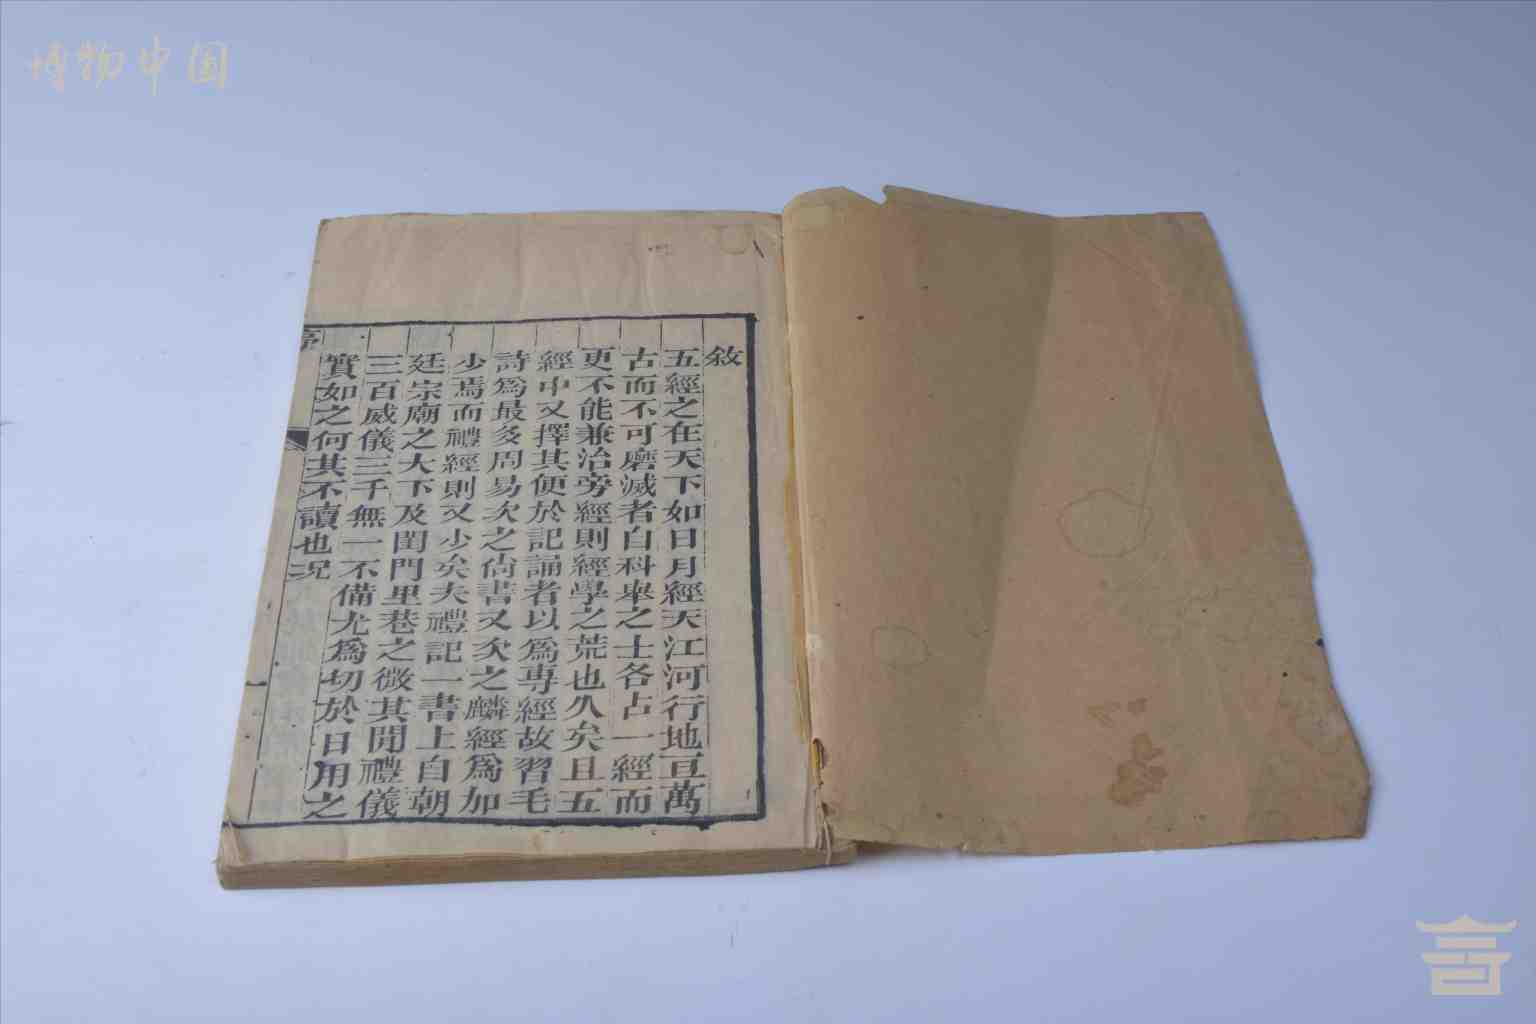 博物中国
敘
五經之在天下如日月經天江河行地亘萬
古而不可磨滅者自科舉之士各占一經而
更不能兼治旁經則經學之荒也久矣且五
經中又擇其便於記誦者以爲專經故習毛
詩爲最多周易次之尙書又次之麟經爲加
少焉而禮經則又少矣夫禮記一書上自朝
廷宗廟之大下及閨門里巷之微其閒禮儀
三百威儀三千無一不備尤爲切於日用之
實如之何其不讀也况
序
一